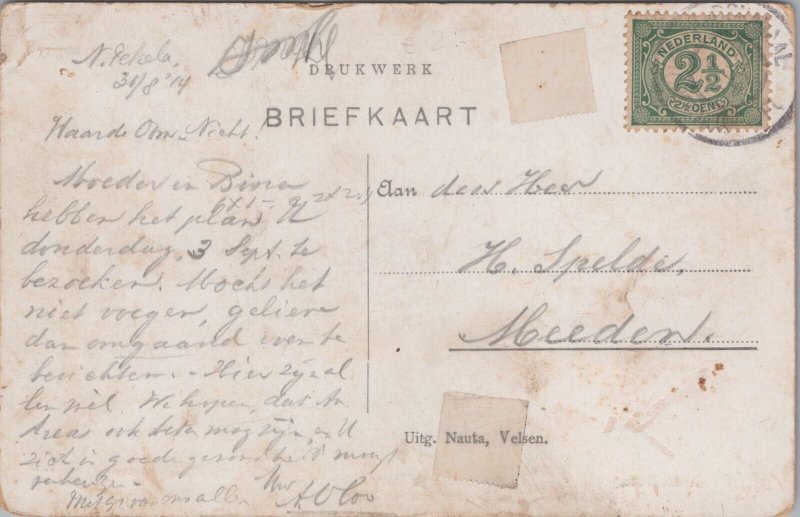 N. Pekela
31/8 '14
DRUKWERK
BRIEFKAART
NEDERLAND
2½
2½ CENT
Waarde Om Nicht!
Moeder en Bina
hebben het plan U
donderdag 3 Sept. te
bezoeken. Mocht het
niet voegen, gelieve
dan omgaand even te
berichten. - Hier zijn al
len wel. We hopen, dat An
dreas ook beter mag zijn, en U
zich in goede gezondheid moogt
verheugen.
Met gr. van ons allen
Uw
Aan
den Heer
H. Spelde,
Meeden.
Uitg. Nauta, Velsen.